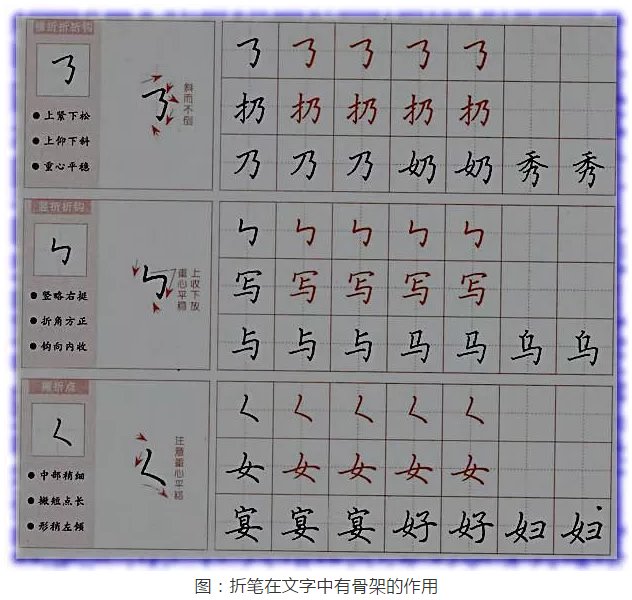 横折折折钩
㇡
上紧下松
上仰下斜
重心平稳
㇡
斜而不倒
㇡ ㇡ ㇡ ㇡ ㇡
扔 扔 扔 扔 扔
乃 乃 乃 奶 奶 秀 秀
竖折折钩
㇉
竖略右挺
折角方正
钩向内收
㇉
上收下放
重心平稳
㇉ ㇉ ㇉ ㇉ ㇉
写 写 写 写 写
与 与 与 马 马 乌 乌
撇折点
㇛
中部稍细
撇短点长
形稍左倾
㇛
注意重心平稳
㇛ ㇛ ㇛ ㇛ ㇛
女 女 女 女 女
宴 宴 宴 好 好 妇 妇
图：折笔在文字中有骨架的作用